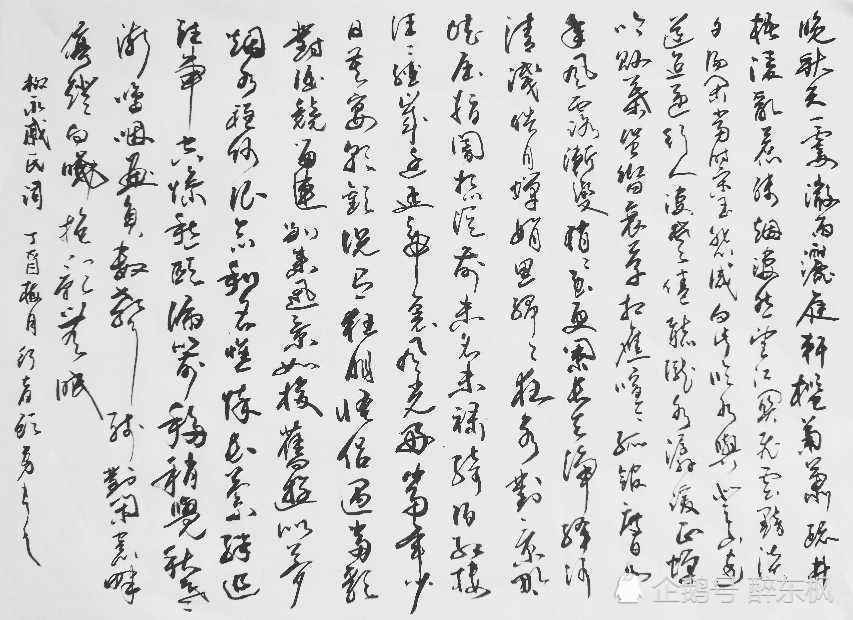 晚秋天一霎微雨灑庭軒檻菊蕭疏井
梧淩亂惹殘烟凄然望江關飛雲黯淡
夕陽間當時宋玉悲感向此臨水與登山遠
道迢遞行人凄楚倦聽隴水潺湲正蟬
吟敗葉蛩響衰草相應喧喧孤館度日如
年風露漸變悄悄至更闌長天净絳河
清淺皓月嬋娟思綿綿夜永對景那
堪屈指闇想從前未名未禄綺陌紅樓
往往經歲遷延帝里風光好當年少
日暮宴朝歡況有狂朋怪侣遇當歌
對酒競留連別來迅景如梭舊遊似夢
烟水程何限念利名憔悴長縈絆追
往事空慘愁顏漏箭移稍覺輕寒
漸嗚咽畫角數聲殘對閑窗畔
停燈向曉抱影無眠
柳永戚氏詞 丁酉梅月
企鹅号 醉东枫